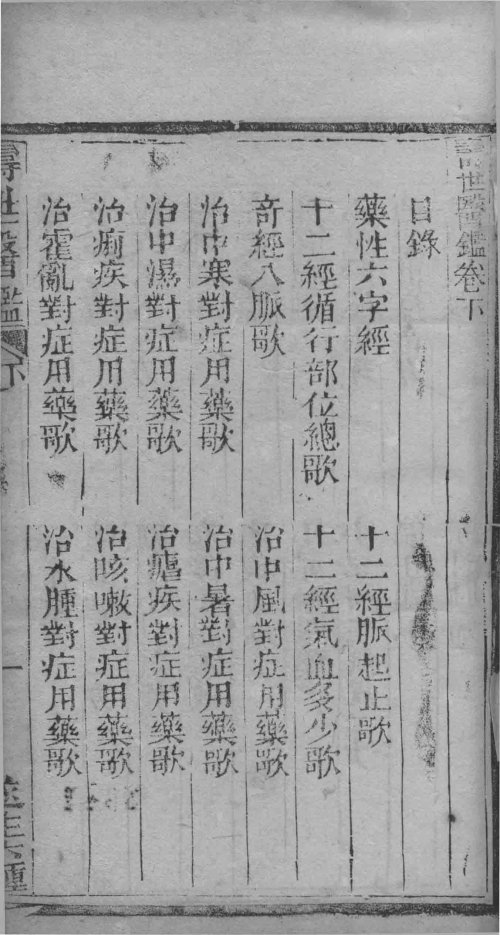 壽世醫鑑卷下
目錄
藥性六字經
十二經脈起止歌
十二經循行部位總歌
十二經氣血多少歌
奇經八脈歌
治中風對症用藥歌
治中寒對症用藥歌
治中暑對症用藥歌
治中濕對症用藥歌
治瘧疾對症用藥歌
治痢疾對症用藥歌
治咳嗽對症用藥歌
治霍亂對症用藥歌
治水腫對症用藥歌
壽世醫鑑
下
一